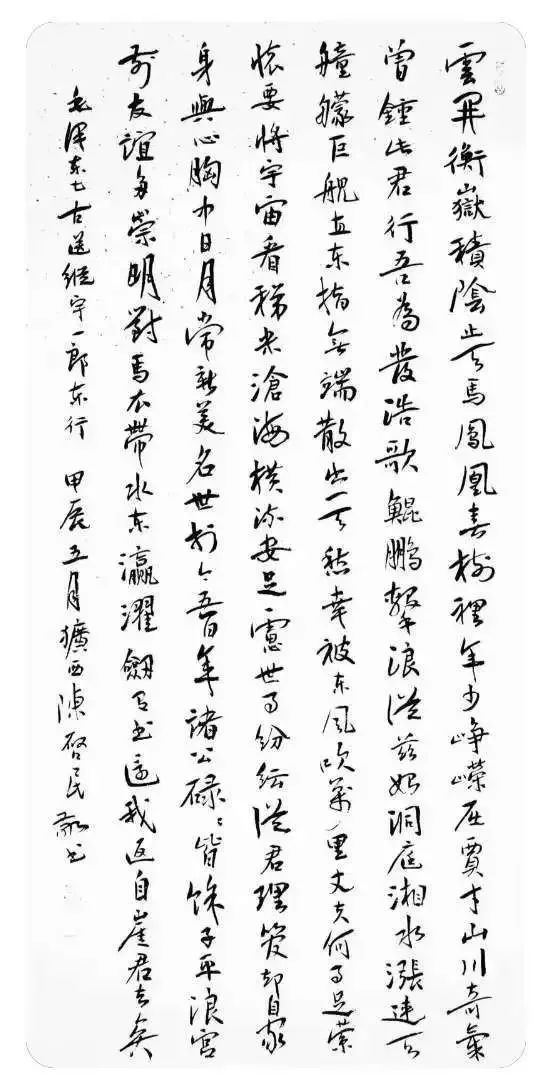 雲開衡嶽積陰止天馬鳳凰春樹裡年少崢嶸屈賈才山川奇氣
曾鍾此君行吾為發浩歌鯤鵬擊浪從茲始洞庭湘水漲連天
艟艨巨艦直東指無端散出一天愁幸被東風吹萬里丈夫何事足縈
懷要將宇宙看稊米滄海橫流安足慮世事紛紜從君理管却自家
身與心胸中日月常新美名世於今五百年諸公碌〻皆餘子平浪宮
前友誼多崇明對馬衣帶水東瀛濯劍有書還我返自崖君去矣
毛澤東七古送縱宇一郎東行 甲辰五月獷西陳啓民敬書